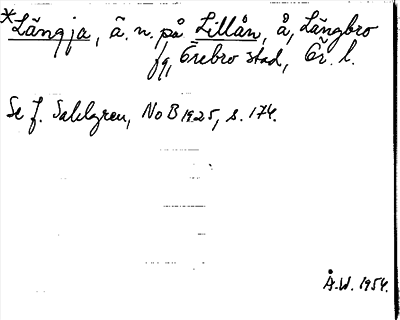 *Långja, ä.n. på Lillån, å, Längbro
fg, Örebro stad, Ör. l.
Se J. Sahlgren, NoB 1925, s. 174.
Å.W. 1954.